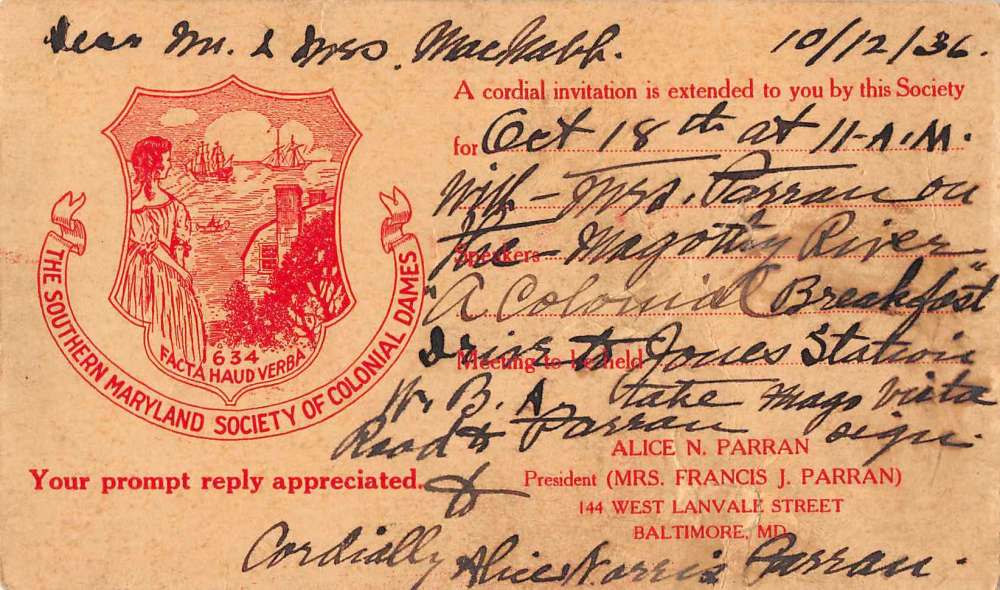 Dear Mr. & Mrs. MacNabb.
10/12/36.
A cordial invitation is extended to you by this Society
for Oct 18th at 11-A.M.
With - Mrs. Parran on
the - Magothy River
Speakers
"A Colonial Breakfast"
Drive to Jones Station
Meeting to be held
W. B. A. take Mago Vista
Road to Parran sign.
THE SOUTHERN MARYLAND SOCIETY OF COLONIAL DAMES
1634
FACTA HAUD VERBA
ALICE N. PARRAN
Your prompt reply appreciated.
President (MRS. FRANCIS J. PARRAN)
144 WEST LANVALE STREET
BALTIMORE, MD.
Cordially Alice Norris Parran.